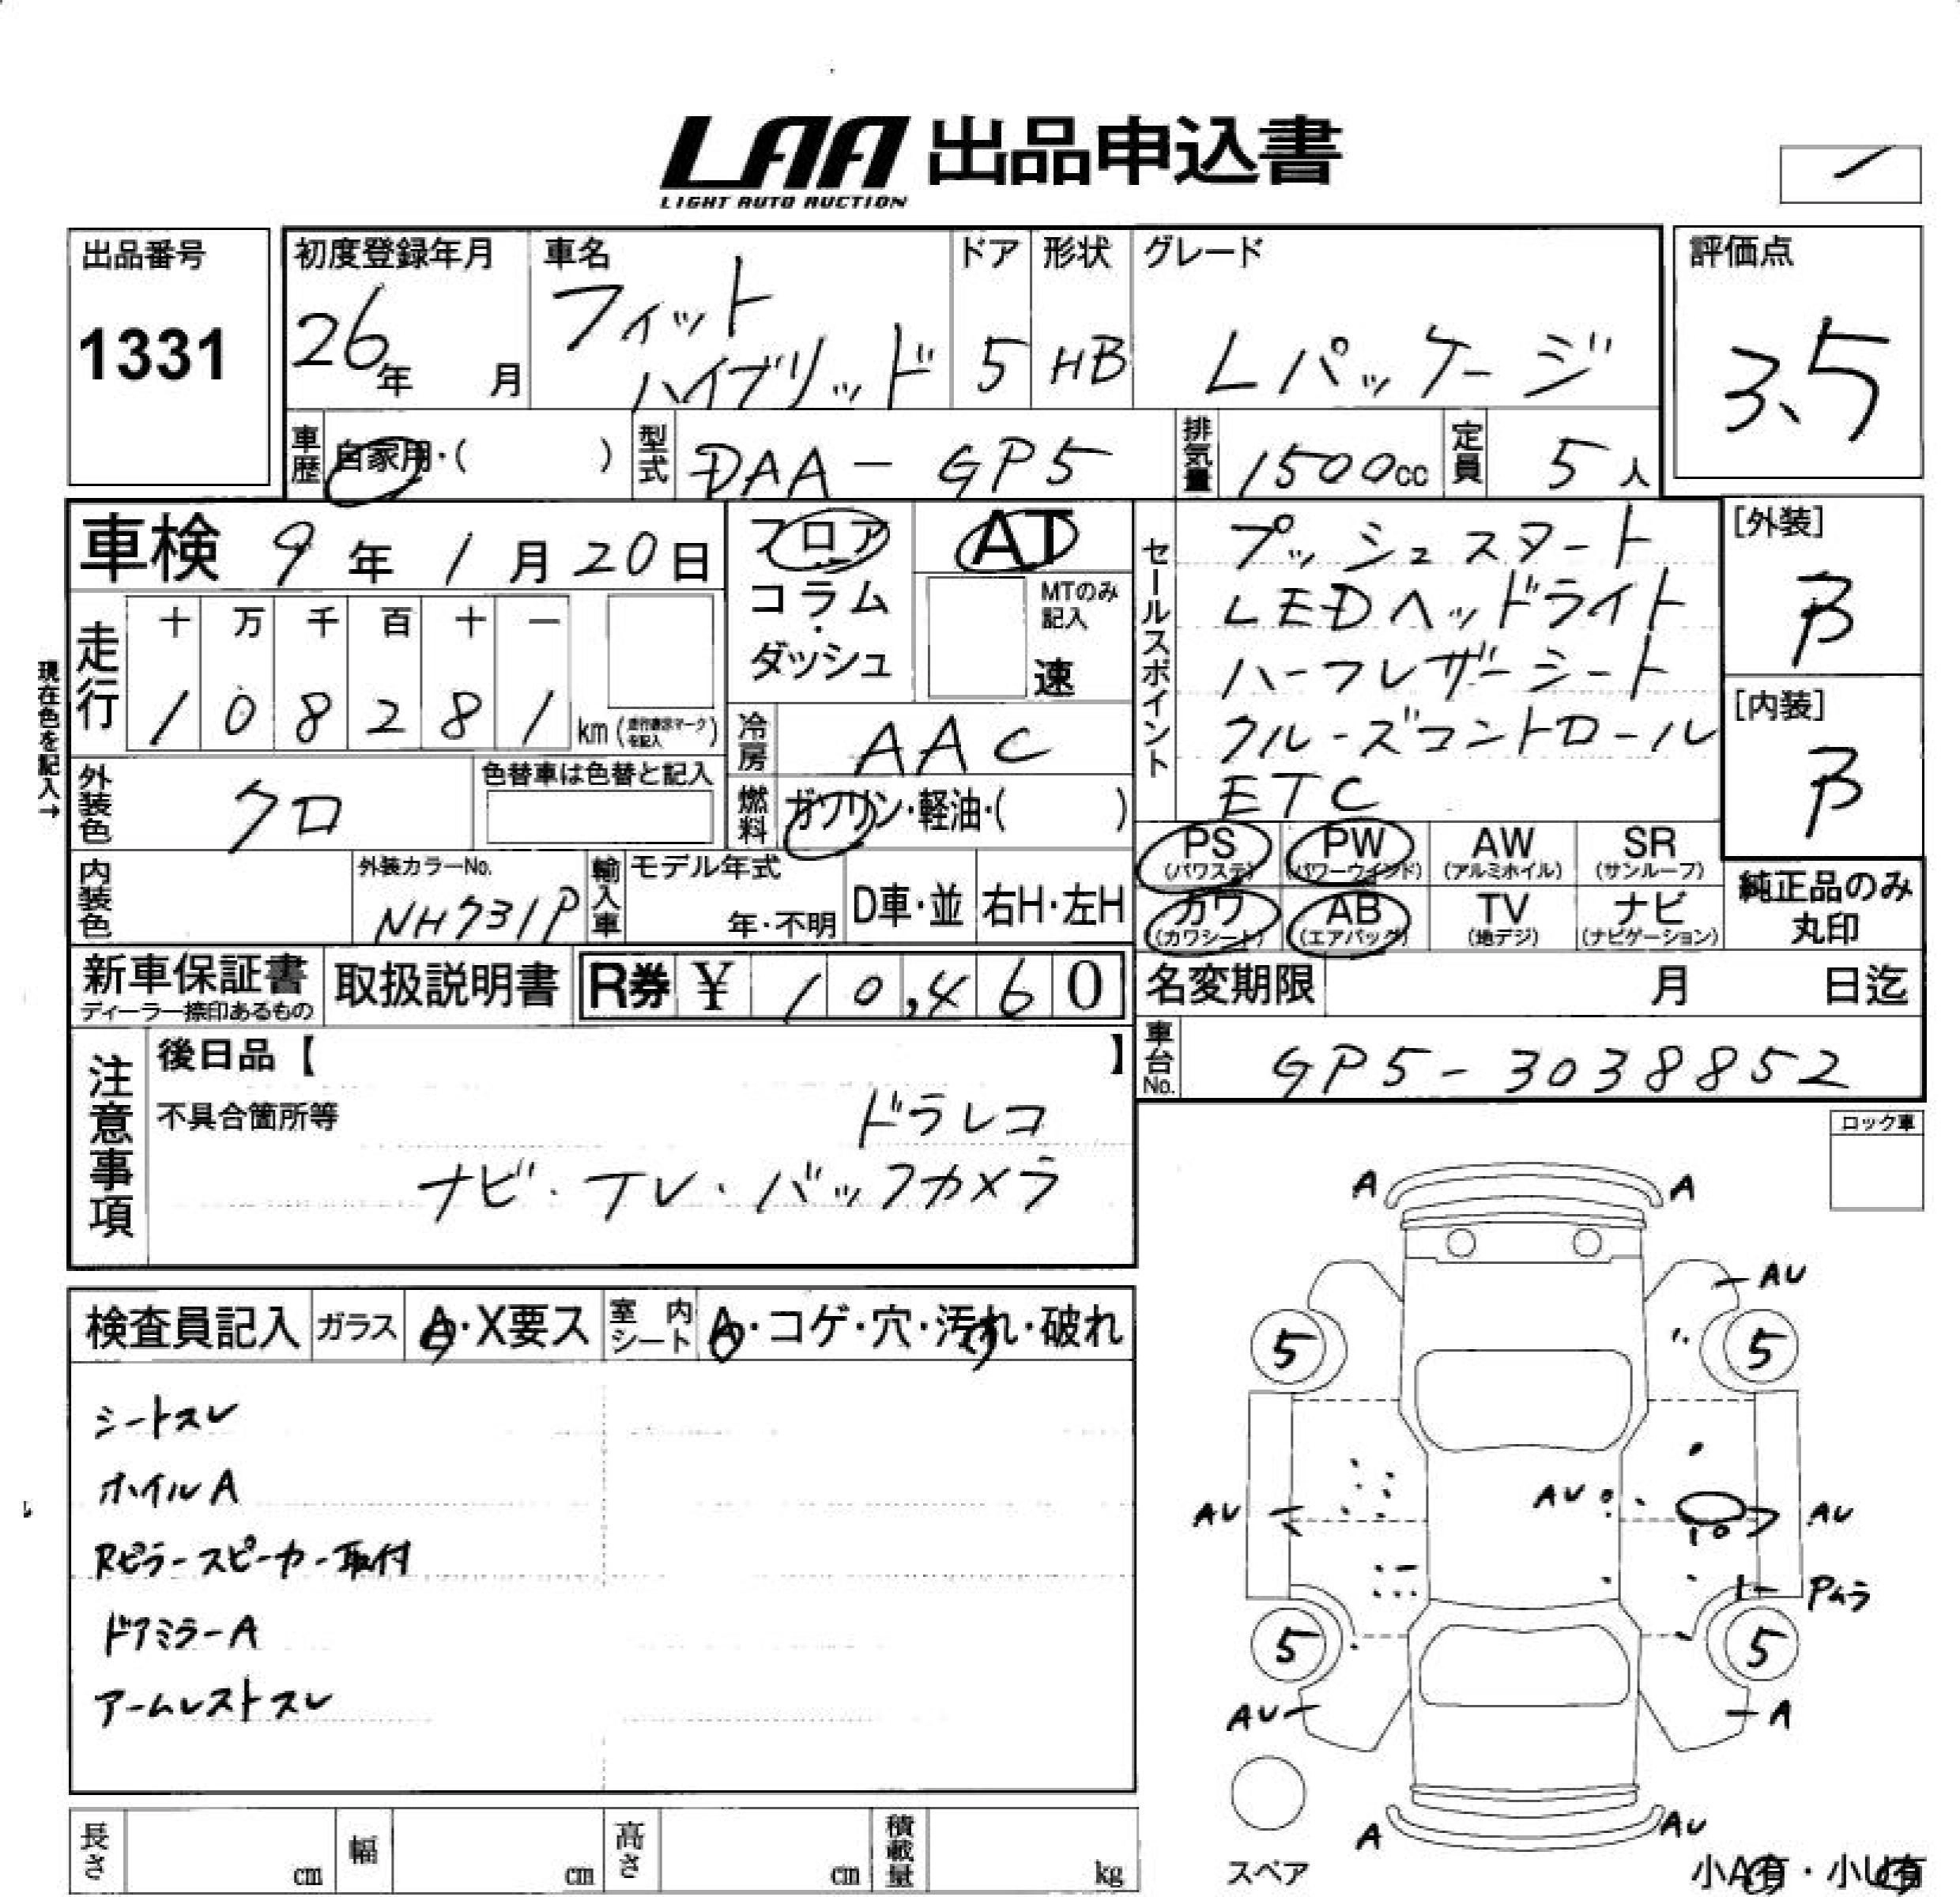 LAA 出品申込書
LIGHT AUTO AUCTION
出品番号
1331
初度登録年月
26年 月
車名
フィット
ハイブリッド
ドア
5
形状
HB
グレード
Lパッケージ
評価点
3.5
車歴 自家用・( )
型式 DAA-GP5
排気量 1500cc
定員 5人
車検 9年1月20日
フロア
コラム
・
ダッシュ
AT
MTのみ
記入
速
セールスポイント
プッシュスタート
LEDヘッドライト
ハーフレザーシート
クルーズコントロール
ETC
[外装]
B
[内装]
B
現在色を記入→
走行
十 万 千 百 十 一
1 0 8 2 8 1 km
冷房 AAC
燃料 ガソリン・軽油・( )
外装色 クロ
色替車は色替と記入
内装色
外装カラーNo.
NH731P
輸入車
モデル年式
年・不明
D車・並
右H・左H
PS
(パワステ)
PW
(パワーウインド)
AW
(アルミホイル)
SR
(サンルーフ)
カワ
(カワシート)
AB
(エアバッグ)
TV
(地デジ)
ナビ
(ナビゲーション)
純正品のみ
丸印
新車保証書
ディーラー捺印あるもの
取扱説明書
R券 ¥ 10,460
名変期限 月 日迄
車台No. GP5-3038852
注意事項
後日品【 】
不具合箇所等
ドラレコ
ナビ・TV・バックカメラ
ロック車
検査員記入
ガラス A・X要ス
室内シート A・コゲ・穴・汚れ・破れ
シートスレ
ホイルA
Rピラースピーカー取付
ドアミラーA
アームレストスレ
A A
AU
5 5
AU AU AU
Pムラ
5 5
AU A
A AU
スペア
小A有・小U有
長さ cm
幅 cm
高さ cm
積載量 kg